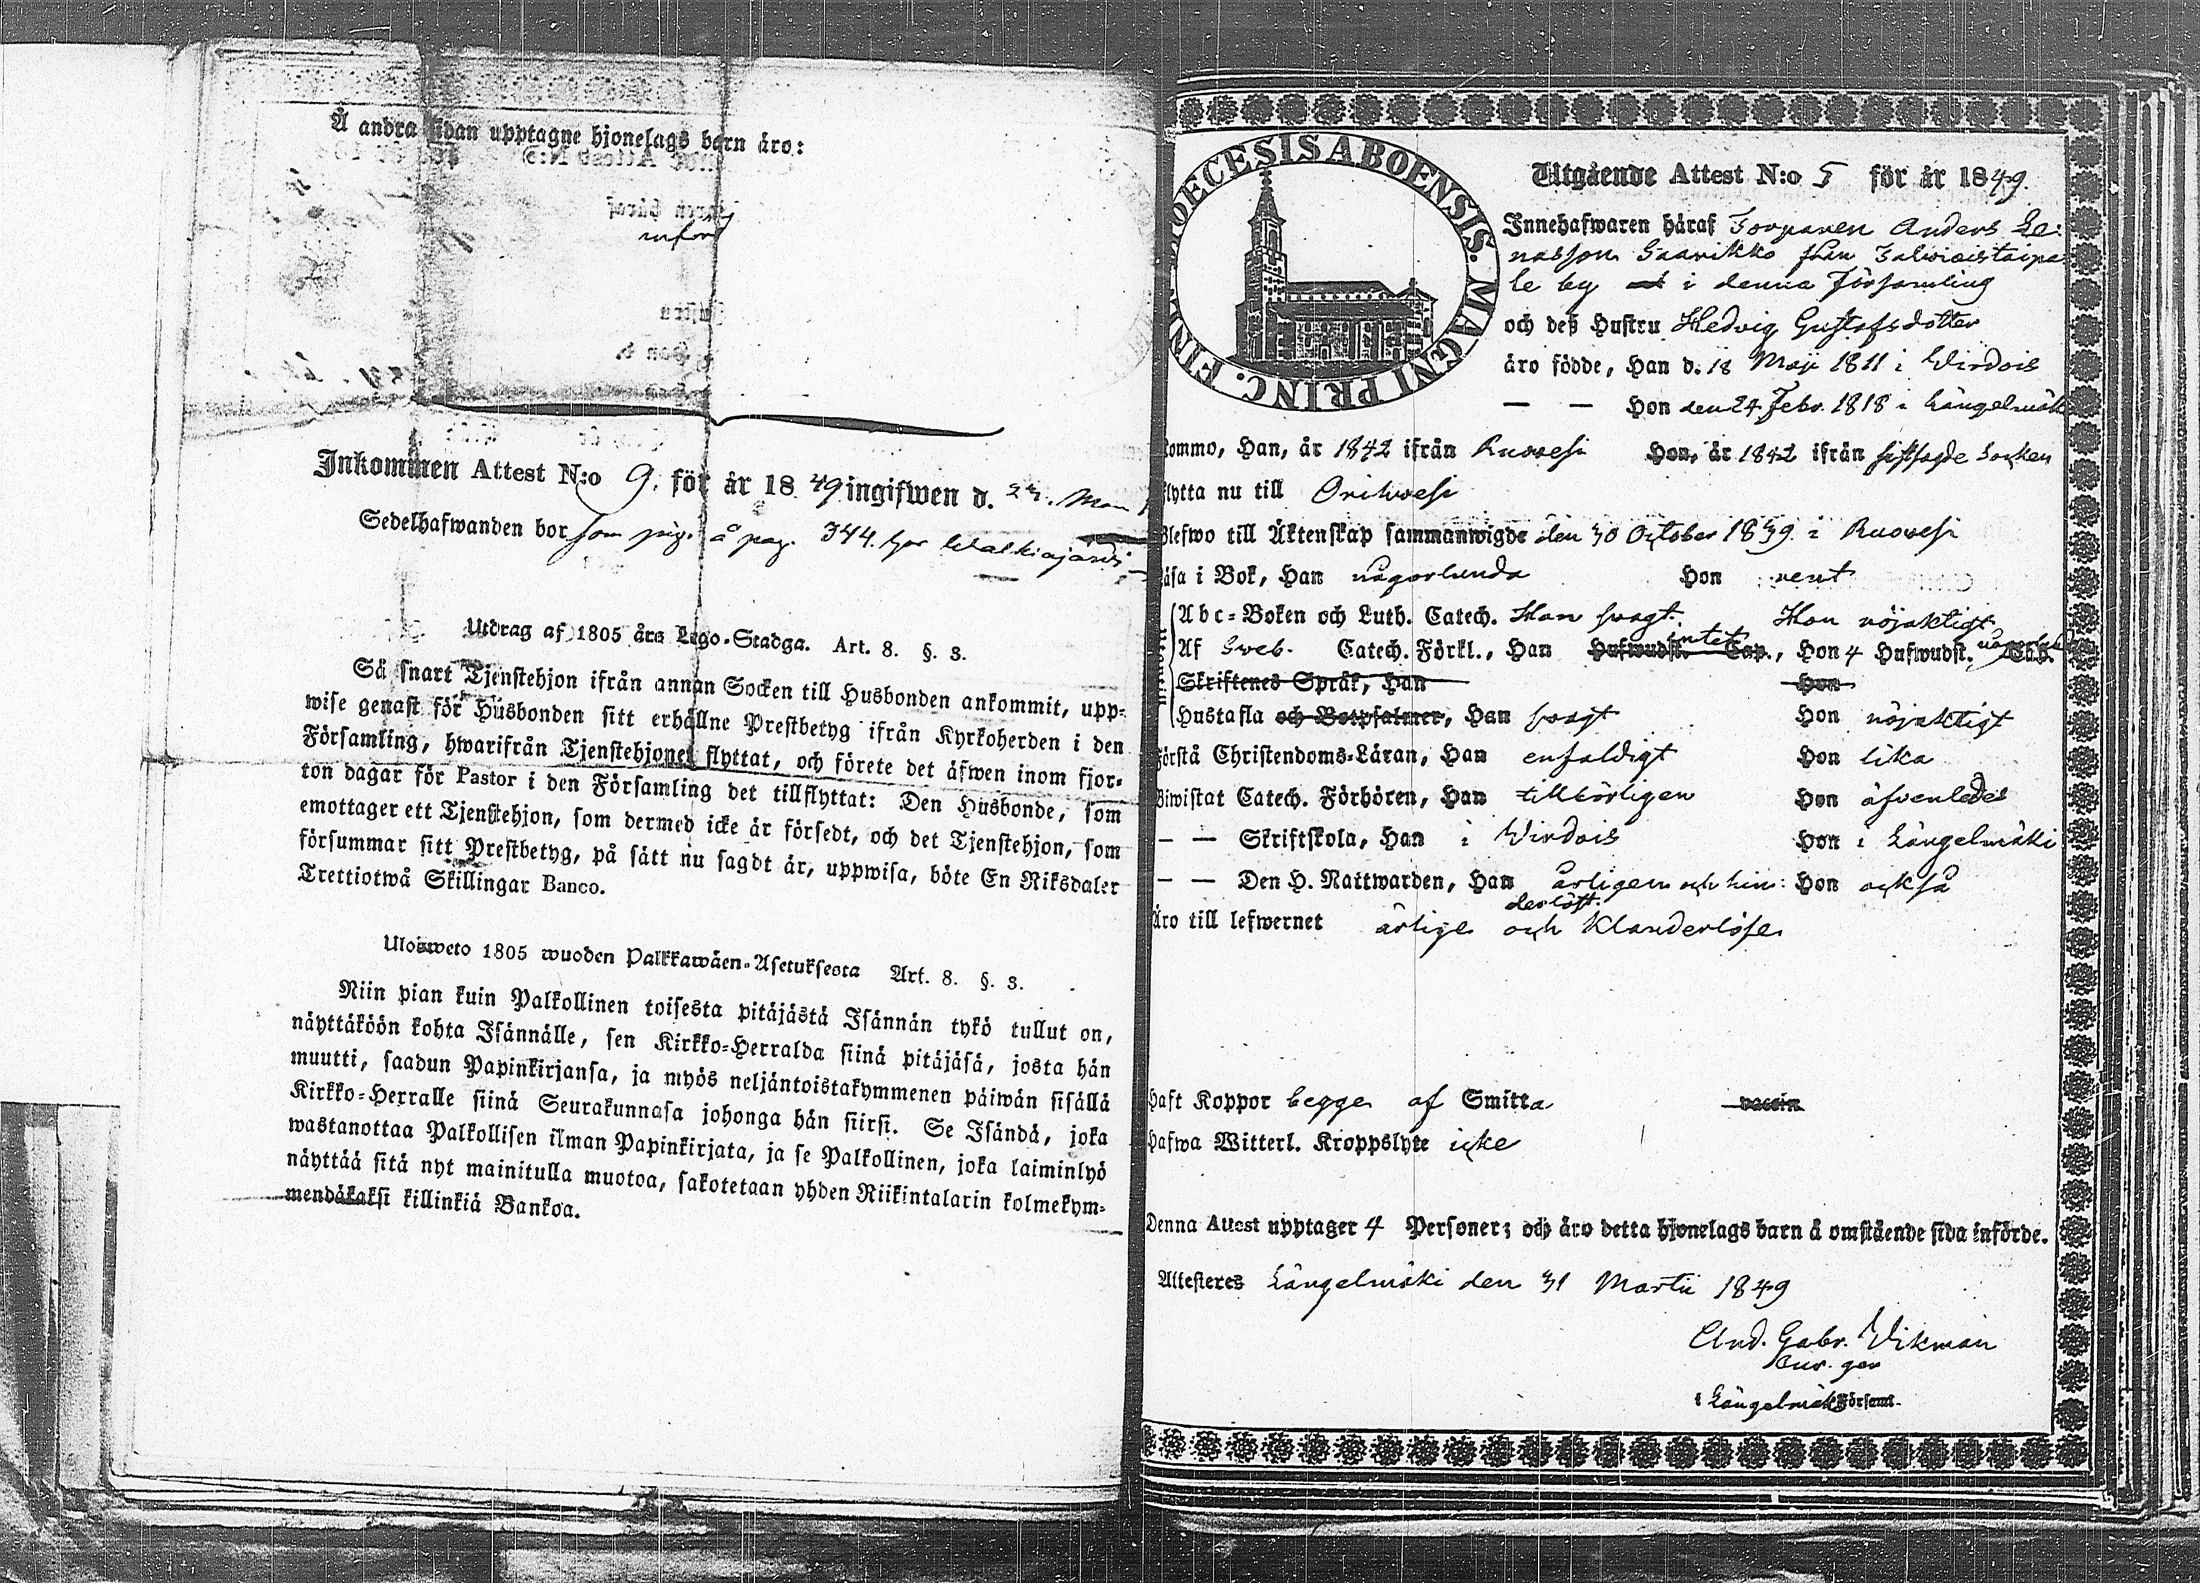 Å andra sidan upptagne hjonelags barn äro:
Inkommen Attest N:o 9. för år 1849 ingifwen d.
Sedelhafwanden bor som pig. å pag. 344.
Utdrag af 1805 års Lego-Stadga. Art. 8. §. 3.
Så snart Tjenstehjon ifrån annan Socken till Husbonden ankommit, upp-
wise genast för Husbonden sitt erhållne Prestbetyg ifrån Kyrkoherden i den
Församling, hwarifrån Tjenstehjonet flyttat, och förete det äfwen inom fjor-
ton dagar för Pastor i den Församling det tillflyttat: Den Husbonde, som
emottager ett Tjenstehjon, som dermed icke är försedt, och det Tjenstehjon, som
försummar sitt Prestbetyg, på sätt nu sagdt är, uppwisa, böte En Riksdaler
Trettiotwå Skillingar Banco.
Ulosweto 1805 wuoden Palkkawäen-Asetuksesta Art. 8. §. 3.
Niin pian kuin Palkollinen toisesta pitäjästä Isännän tykö tullut on,
näyttäköön kohta Isännälle, sen Kirkko-Herralda siinä pitäjäsä, josta hän
muutti, saadun Papinkirjansa, ja myös neljäntoistakymmenen päiwän sisällä
Kirkko-Herralle siinä Seurakunnasa johonga hän siirsi. Se Isändä, joka
wastanottaa Palkollisen ilman Papinkirjata, ja se Palkollinen, joka laiminlyö
näyttää sitä nyt mainitulla muotoa, sakotetaan yhden Riikintalarin kolmekym-
mendäkaksi killinkiä Bankoa.
DIOECESIS ABOENSIS. MAGNI PRINC. FINL.
Utgående Attest N:o 5 för år 1849.
Innehafwaren häraf Torparen Anders
nasson Saarikko från
le by i denna Församling
och deß Hustru Hedvig Gustafsdotter
äro födde, Han d. 18 Maji 1811 i Wirdois
— — Hon den 24 Febr. 1818 i Längelmäki
kommo, Han, år 1842 ifrån Ruovesi Hon, år 1842 ifrån sistsagde Socken
flytta nu till Orihvesi
Blefwo till Äktenskap sammanwigde den 30 October 1839 i Ruovesi
läsa i Bok, Han någorlunda Hon rent
Abc-Boken och Luth. Catech. Han svagt. Hon nöjaktigt
Af Sveb. Catech. Förkl., Han Hufwudst. intet Cap., Hon 4 Hufwudst. Cap.
Skriftenes Språk, Han Hon
Hustafla och Botpsalmer, Han svagt Hon nöjaktigt
förstå Christendoms-Läran, Han enfaldigt Hon lika
Biwistat Catech. Förhören, Han tillbörligen Hon äfvenledes
— — Skriftskola, Han i Wirdois Hon i Längelmäki
— — Den H. Nattwarden, Han årligen och hin: Hon också
derlöst.
äro till lefwernet ärlige och klanderlöse
haft Koppor begge af Smitta vaccin
hafwa Witterl. Kroppslyte icke
Denna Attest upptager 4 Personer; och äro detta hjonelags barn å omstående sida införde.
Attesteres Längelmäki den 31 Martii 1849
And. Gabr. Wikman
Cur. ger
i Längelmäki Förseml.